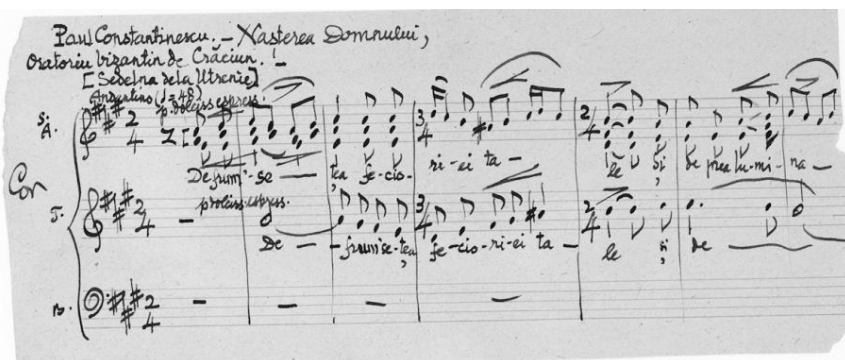 Paul Constantinescu. — Nașterea Domnului,
Oratoriu bizantin de Crăciun. —
[Sedelna dela Utrenie]
Andantino (♩=48)
p dolciss. espress.
S.
A.
2
4
3
4
2
4
De frum'-se — tea fe-cio- ri-ei ta — le și de prea lu-mi-na —
Cor
p dolciss. espress.
T.
2
4
3
4
2
4
De — frum'se-tea fe-cio-ri-ei ta — le și de
B.
2
4